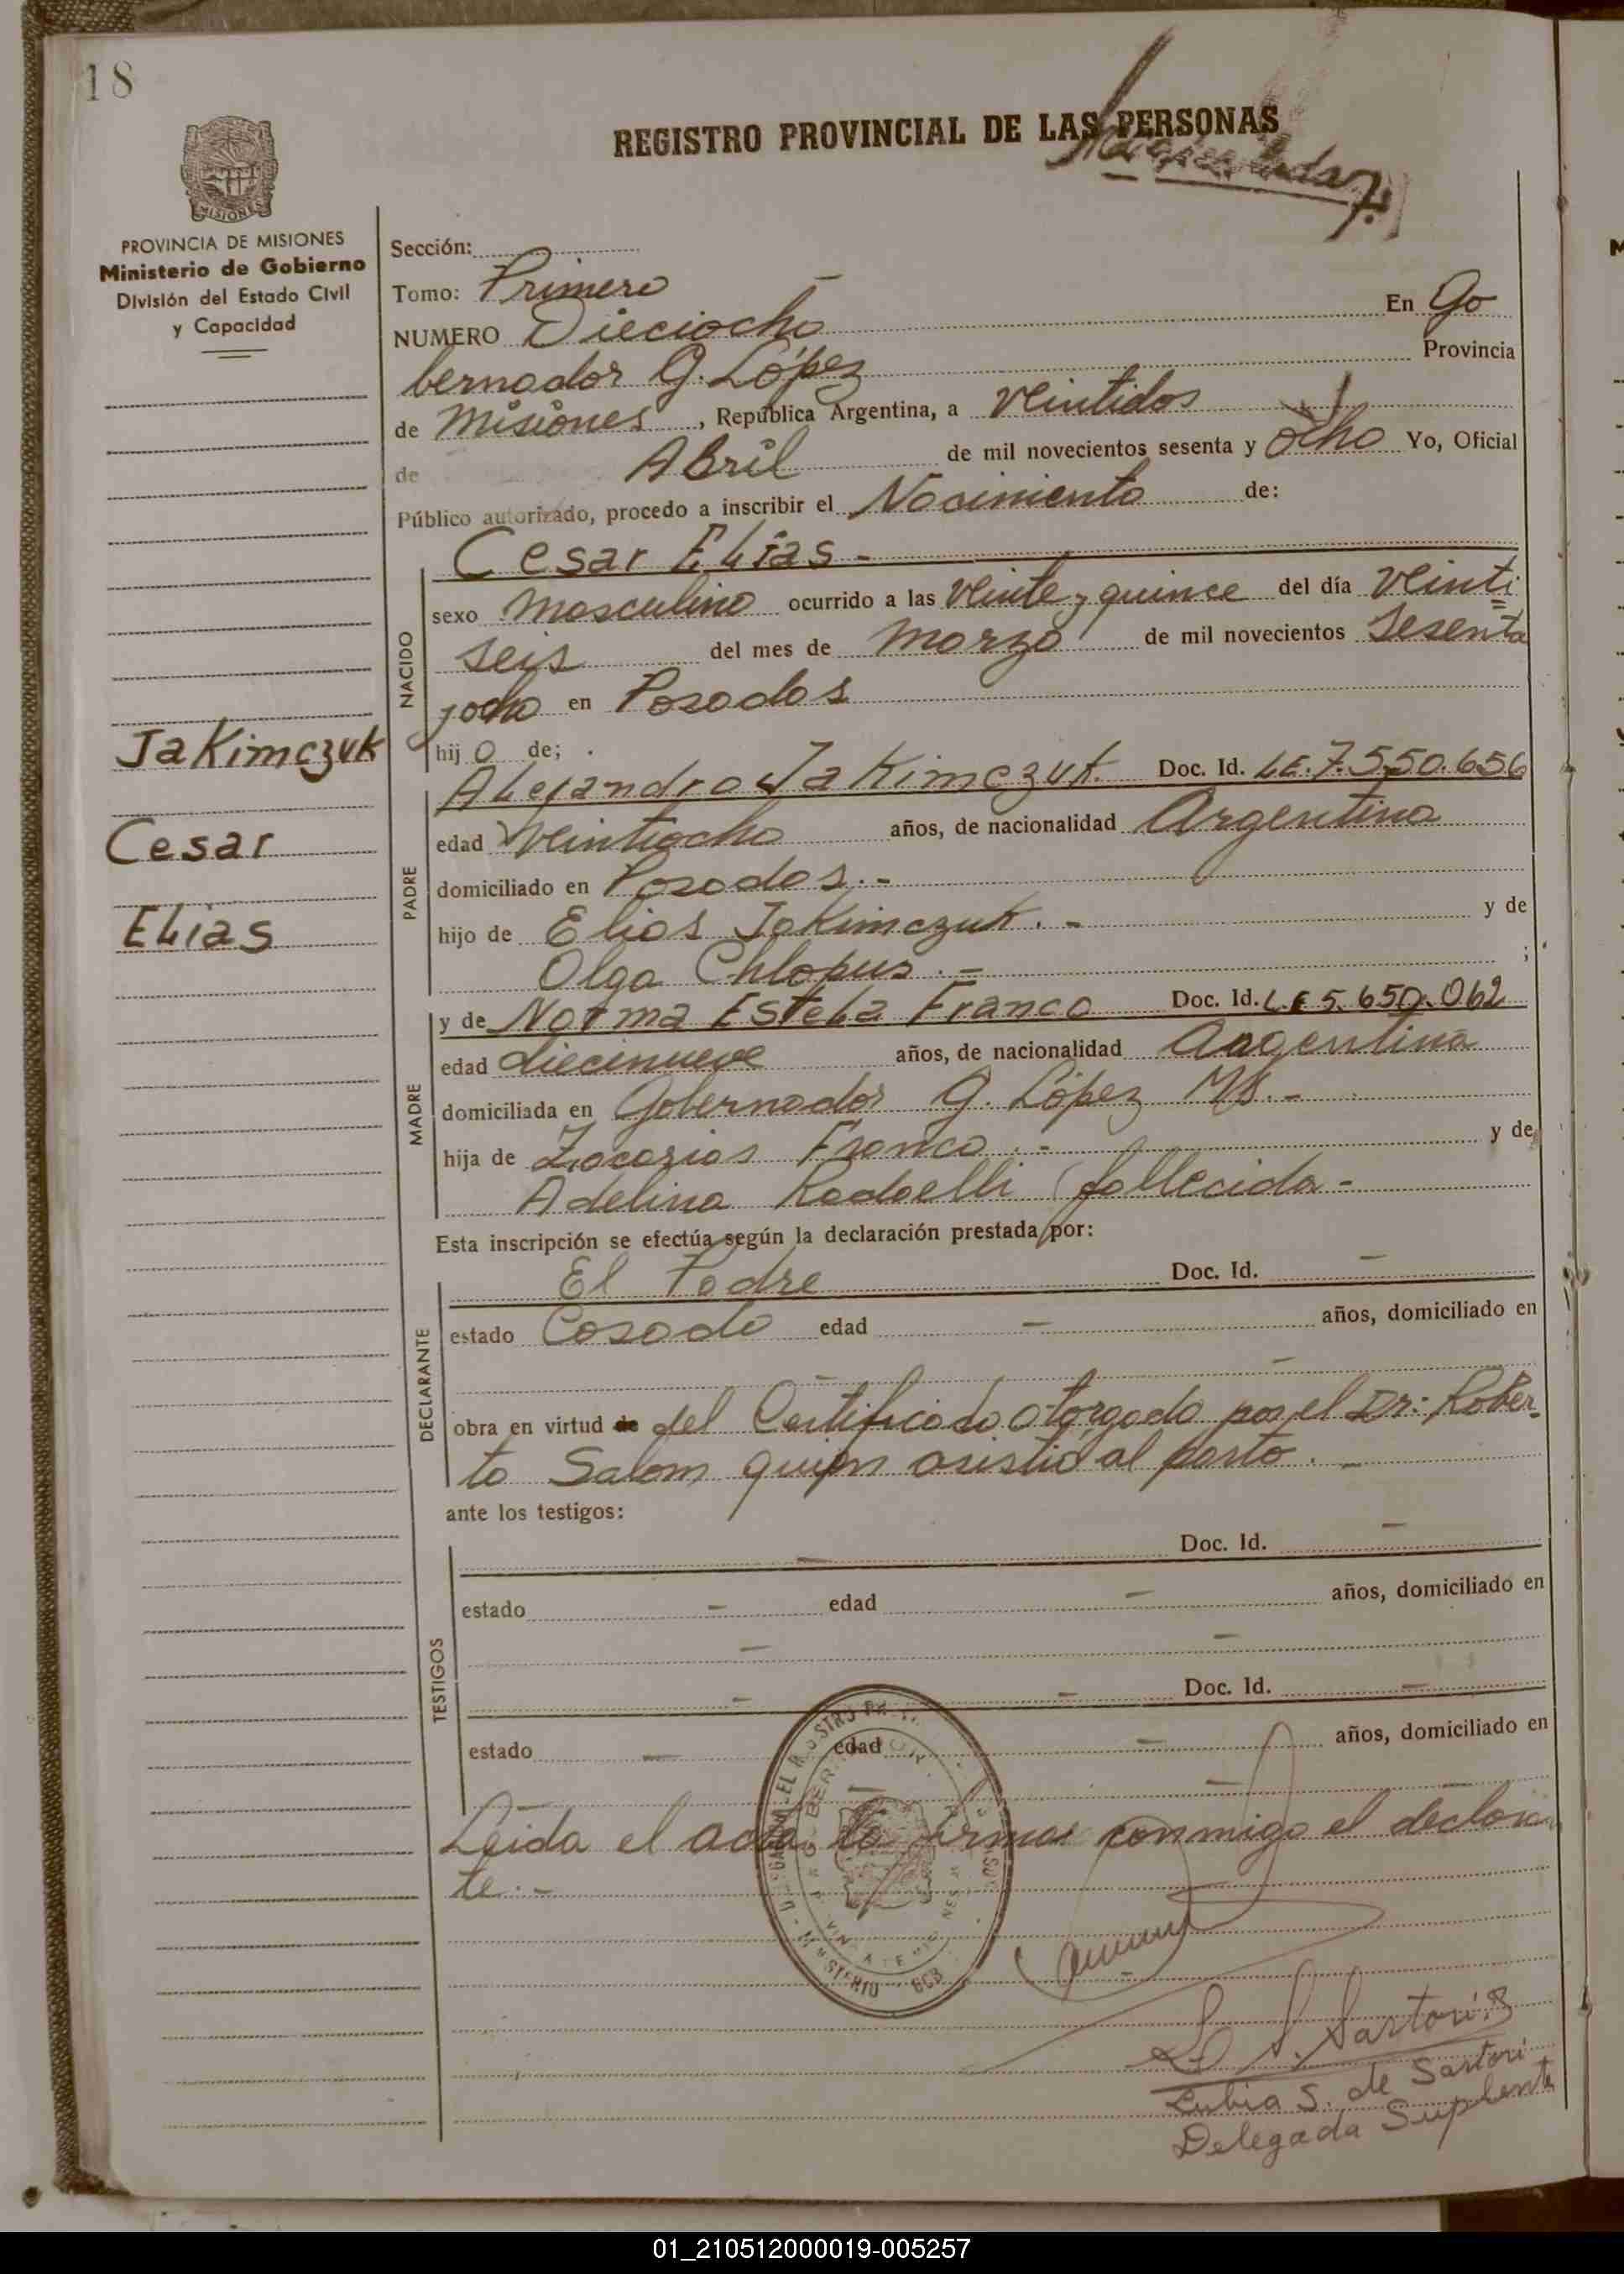 18
REGISTRO PROVINCIAL DE LAS PERSONAS
MISIONES
PROVINCIA DE MISIONES
Ministerio de Gobierno
División del Estado Civil
y Capacidad
Jakimczuk
Cesar
Elias
Sección:
Tomo: Primero
NUMERO Dieciocho En Go
bernador G. López Provincia
de Misiones, República Argentina, a veintidos
de Abril de mil novecientos sesenta y ocho Yo, Oficial
Público autorizado, procedo a inscribir el Nacimiento de:
Cesar Elias -
NACIDO
sexo masculino ocurrido a las veinte y quince del día veinti
seis del mes de marzo de mil novecientos sesenta
y ocho en Posadas
hijo de;
PADRE
Alejandro Jakimczuk. Doc. Id. LE. 7.550.656
edad veintiocho años, de nacionalidad Argentina
domiciliado en Posadas.-
hijo de Elias Jakimczuk.- y de
Olga Chlopus.- ;
MADRE
y de Norma Estela Franco Doc. Id. L.E 5.650.062
edad diecinueve años, de nacionalidad Argentina
domiciliada en Gobernador G. López Ms.-
hija de Zacarias Franco.- y de
Adelina Radaelli (fallecida-
Esta inscripción se efectúa según la declaración prestada por:
DECLARANTE
El Padre Doc. Id. -
estado Casado edad - años, domiciliado en
- -
obra en virtud de del Certificado otorgado por el Dr: Rober-
to Salom quien asistio al parto.-
ante los testigos:
TESTIGOS
- Doc. Id. -
estado - edad - años, domiciliado en
- -
- - Doc. Id. -
estado - edad - años, domiciliado en
- -
Leida el acta la firma conmigo el declaran
te.-
L S. Sartori
Lubia S. de Sartori
Delegada Suplente
01_210512000019-005257